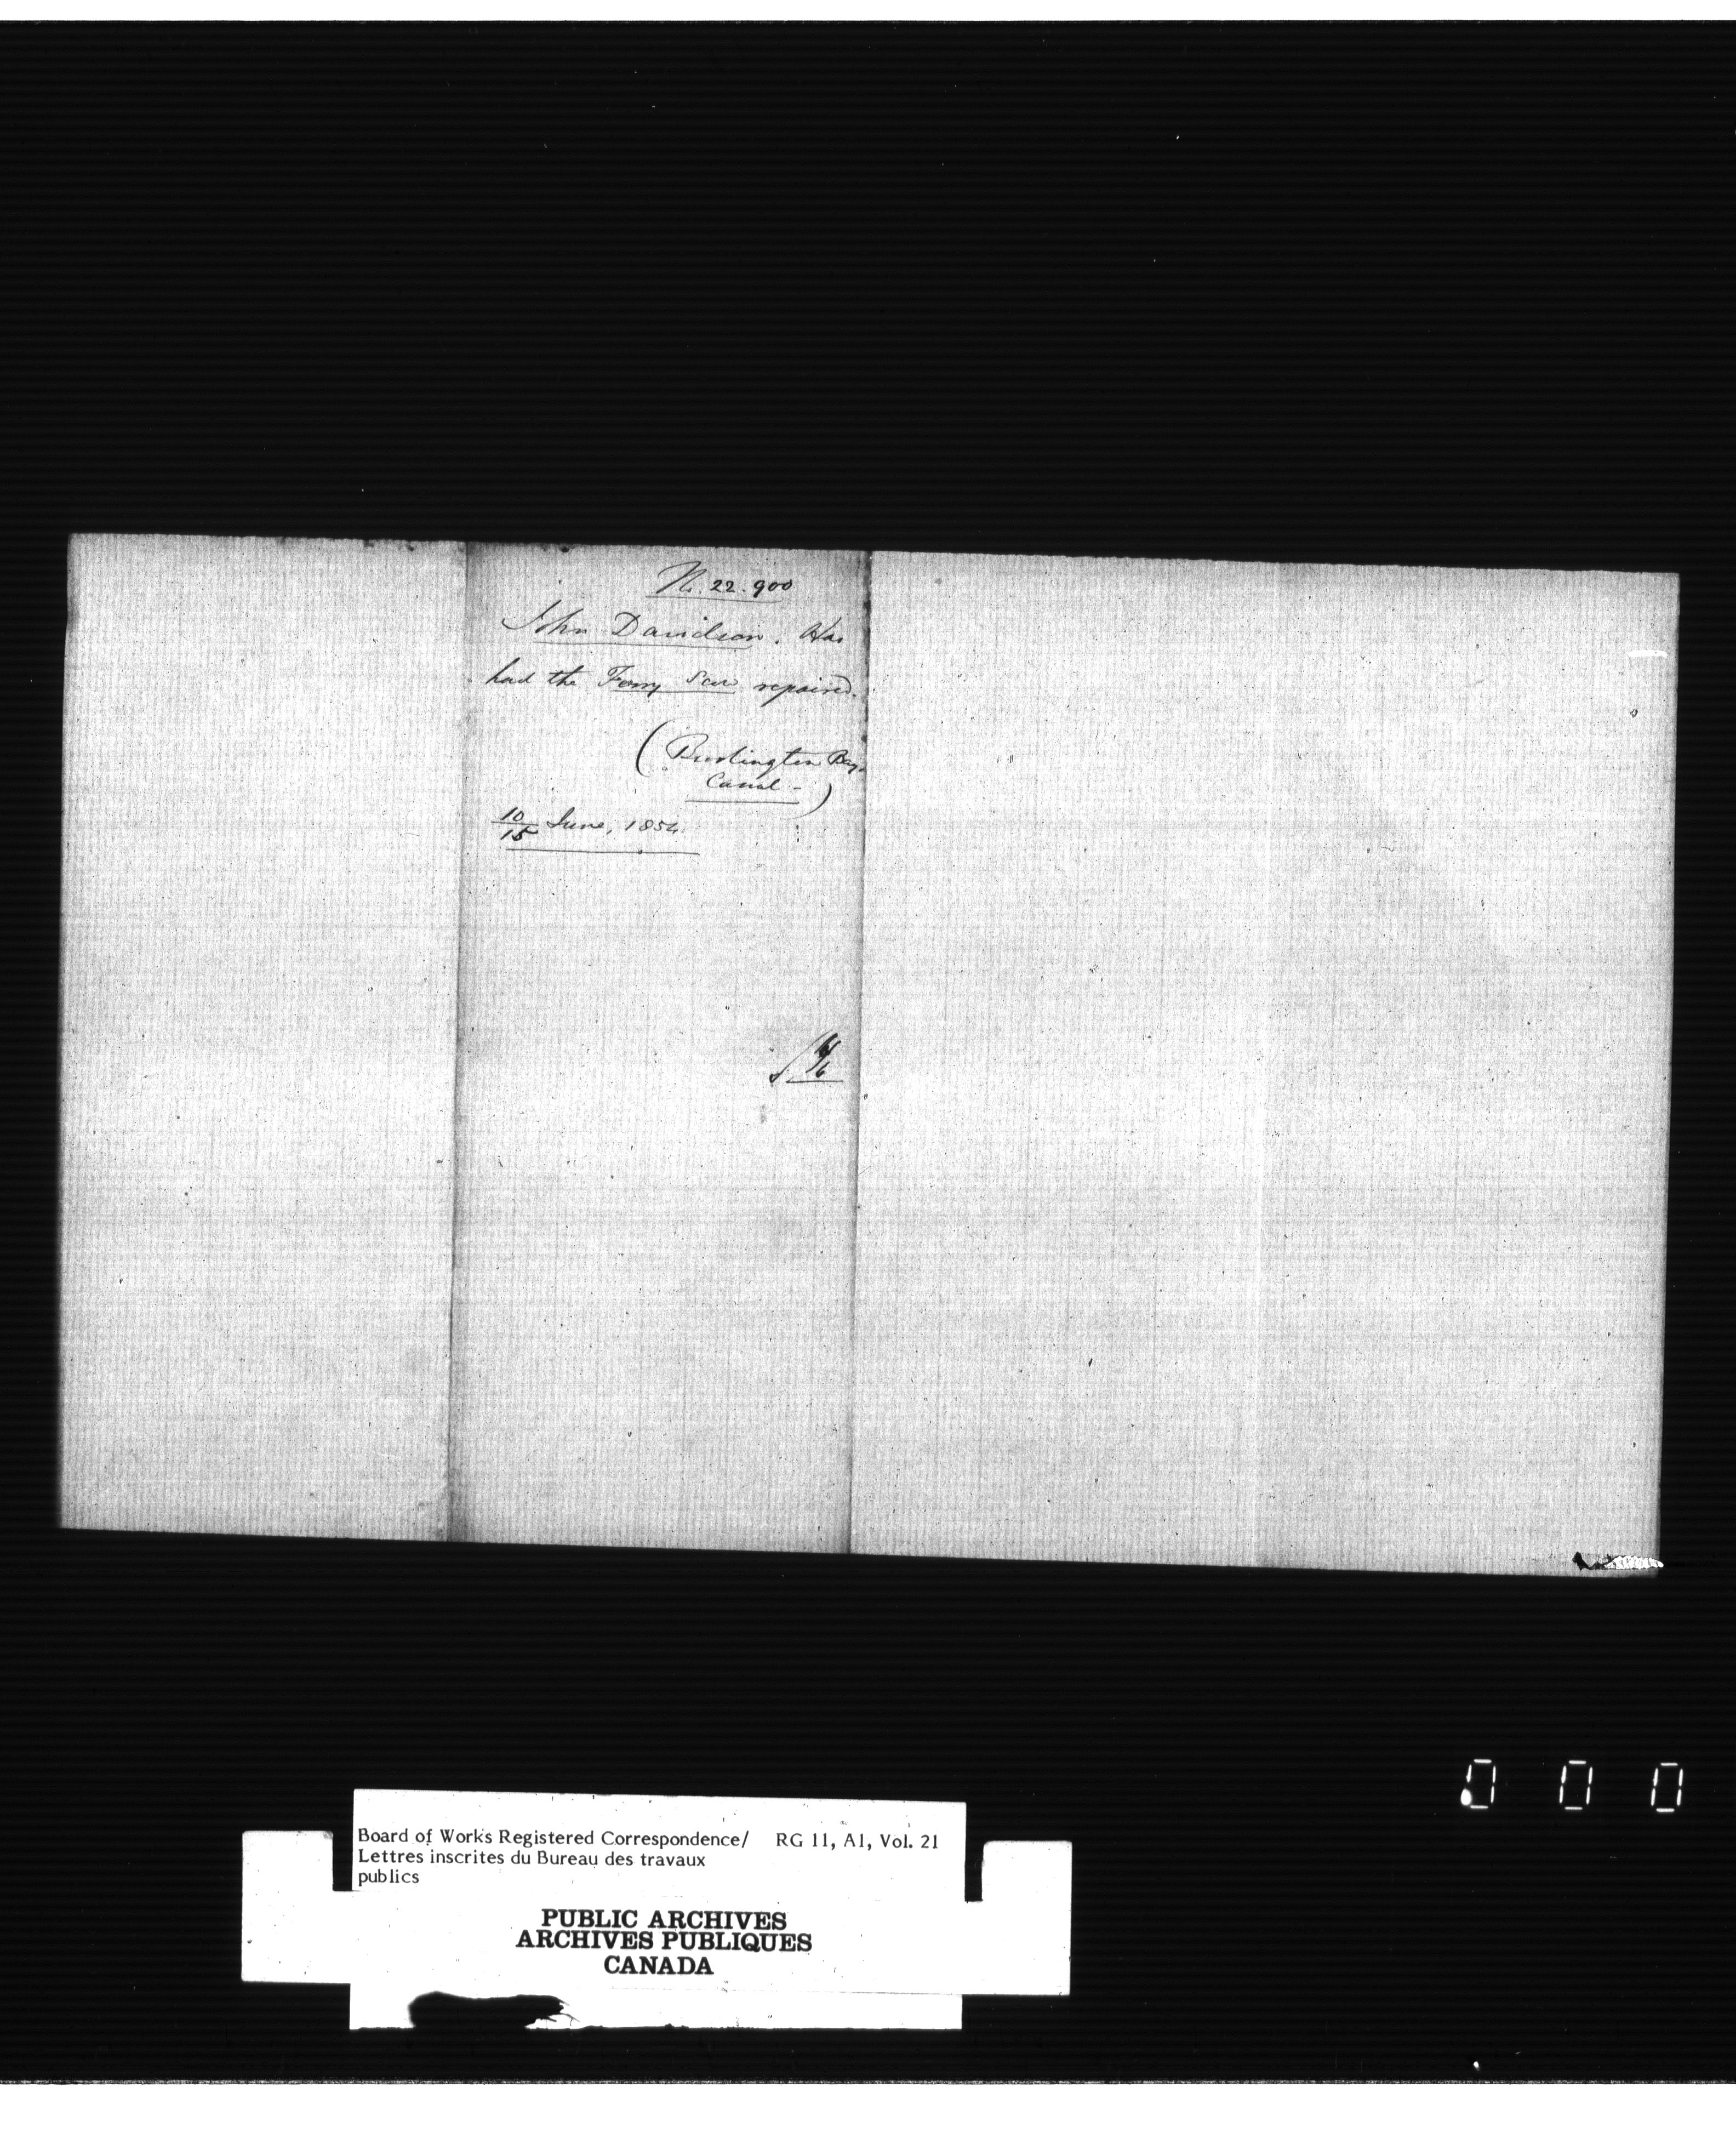 No. 22.900
John Davidson. Has
had the Ferry Scow repaired.
(Burlington Bay
Canal -)
10/15 June, 1854.
Board of Works Registered Correspondence/ RG 11, A1, Vol. 21
Lettres inscrites du Bureau des travaux
publics
PUBLIC ARCHIVES
ARCHIVES PUBLIQUES
CANADA
0 0 0